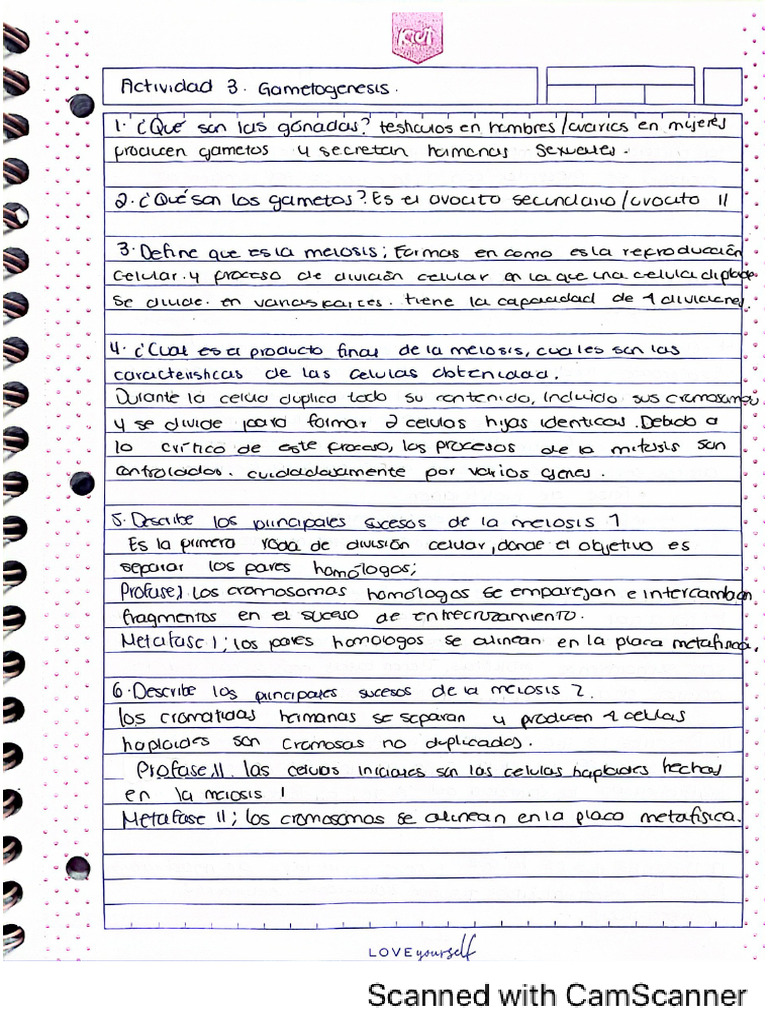 KiUt
Actividad 3. Gametogenesis.
1. ¿Qué son las gónadas? testiculos en hombres/ovarios en mujeres
producen gametos y secretan hormonas sexuales.
2. ¿Qué son los gametos? Es el ovocito secundario/ovocito II
3. Define que es la meiosis; Formas en como es la reproducción
celular. y proceso de división celular en la que una celula diploide
se divide. en varias raices. tiene la capacidad de 4 diviciones
4. ¿Cual es el producto final de la meiosis, cuales son las
caracteristicas de las celulas obtenidad.
Durante la celula duplica todo su contenido, Incluido sus cromosomas
y se divide para formar 2 celulas hijas identicas. Debido a
lo crítico de este proceso, los procesos de la mitosis son
controlados. cuidadosamente por varios genes.
5. Describe los principales sucesos de la meiosis 1
Es la primera roda de división celular, donde el objetivo es
separar los pares homólogos;
Profase I los cromosomas homólogos se emparejan e intercambian
fragmentos en el suceso de entrecruzamiento.
Metafase I; los pares homologos se alinean en la placa metafisica.
6. Describe los principales sucesos de la meiosis 2.
los cromatidas hermanas se separan y producen 4 celulas
haploides son cromosas no duplicados.
Profase II. las celulas iniciares son las celulas haploides hechas
en la meiosis 1
Metafase II; los cromosomas se alinean en la placa metafisica.
LOVE yourself
Scanned with CamScanner